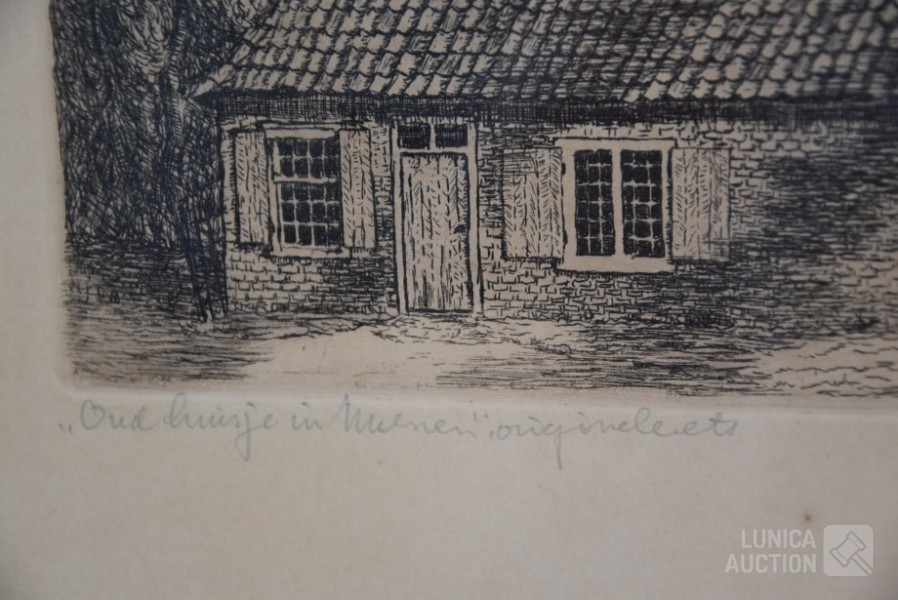 „Oud huisje in Nuenen", originele ets
LUNICA
AUCTION